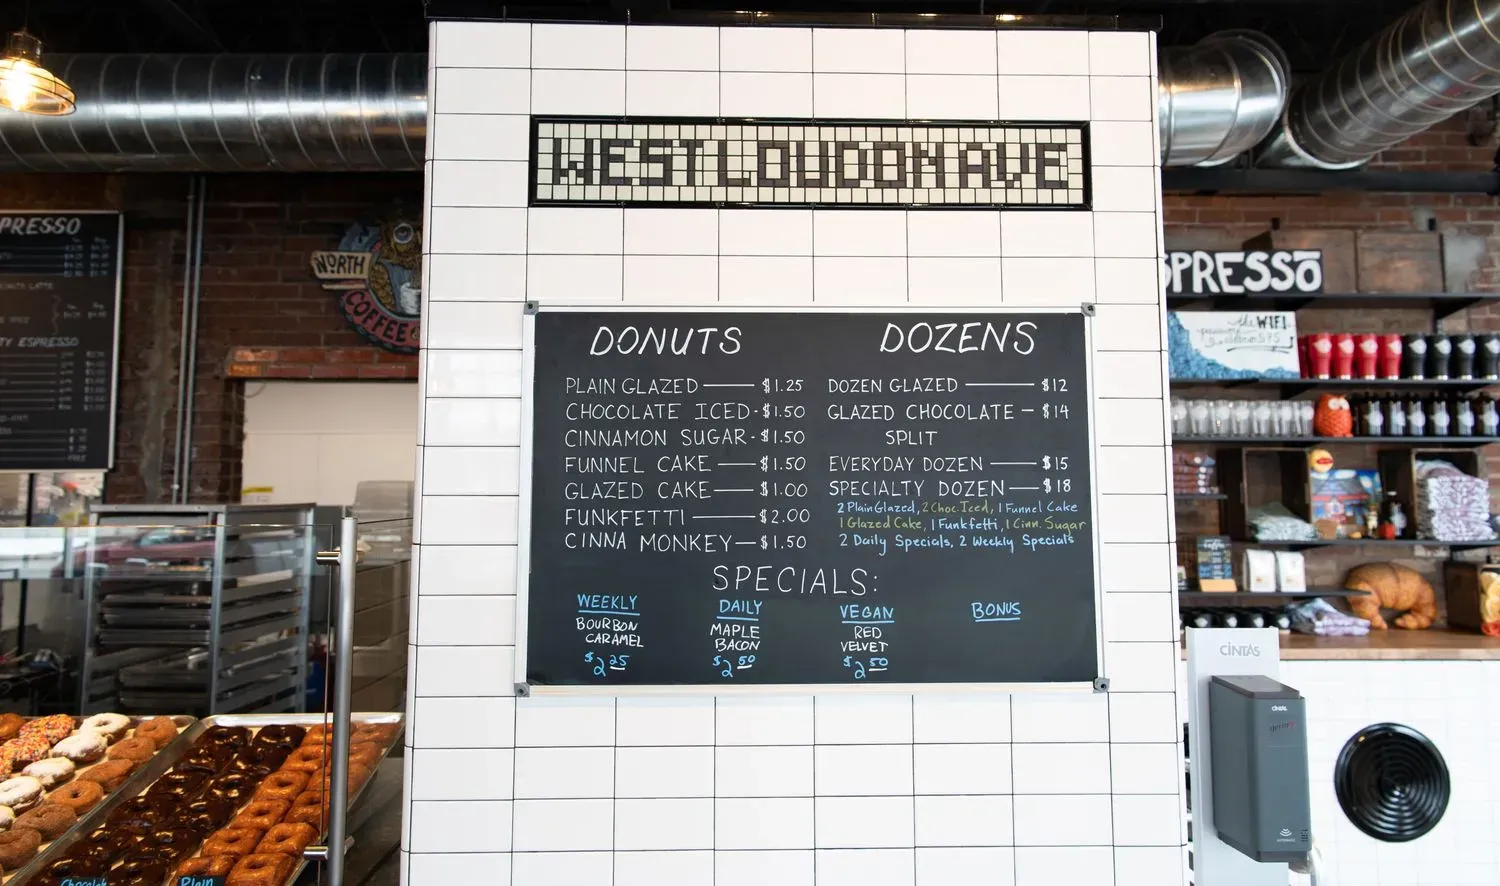 WEST LOUDON AVE
PRESSO
TY ESPRESSO
NORTH
COFFEE
DONUTS
PLAIN GLAZED $1.25
CHOCOLATE ICED $1.50
CINNAMON SUGAR $1.50
FUNNEL CAKE $1.50
GLAZED CAKE $1.00
FUNKFETTI $2.00
CINNA MONKEY $1.50
DOZENS
DOZEN GLAZED $12
GLAZED CHOCOLATE $14
SPLIT
EVERYDAY DOZEN $15
SPECIALTY DOZEN $18
2 Plain Glazed, 2 Choc. Iced, 1 Funnel Cake
1 Glazed Cake, 1 Funkfetti, 1 Cinn. Sugar
2 Daily Specials, 2 Weekly Specials
SPECIALS:
WEEKLY
BOURBON
CARAMEL
$2 25
DAILY
MAPLE
BACON
$2 50
VEGAN
RED
VELVET
$2 50
BONUS
SPRESSO
the WIFI
CINTAS
CINTAS
Chocolate
Plain